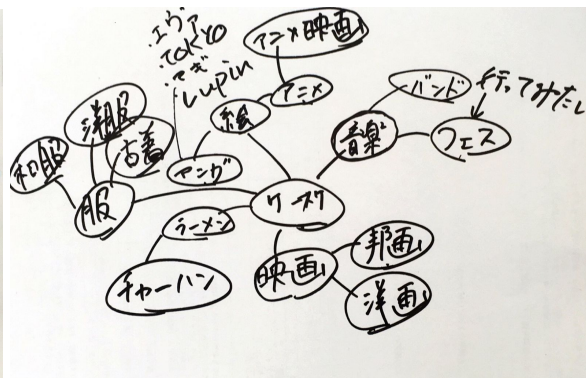 ・エヴァ
・TOKYO
・マギ
Lupin
アニメ映画
アニメ
絵
マンガ
バンド
行ってみたい
音楽
フェス
洋服
和服
古着
服
ラーメン
チャーハン
映画
邦画
洋画